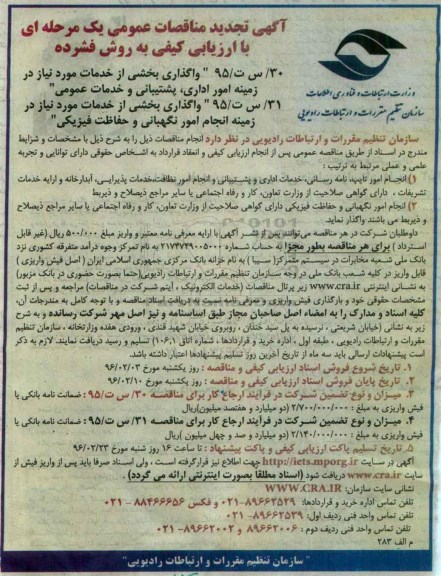 آگهی تجدید مناقصات عمومی یک مرحله ای
با ارزیابی کیفی به روش فشرده
وزارت ارتباطات و فناوری اطلاعات
سازمان تنظیم مقررات و ارتباطات رادیویی
۳۰/ س ت/۹۵ " واگذاری بخشی از خدمات مورد نیاز در
زمینه امور اداری، پشتیبانی و خدمات عمومی"
۳۱/ س ت/۹۵ " واگذاری بخشی از خدمات مورد نیاز در
زمینه انجام امور نگهبانی و حفاظت فیزیکی"
سازمان تنظیم مقررات و ارتباطات رادیویی در نظر دارد انجام مناقصات ذیل را به شرح ذیل با مشخصات و شرایط
مندرج در اسناد از طریق مناقصه عمومی پس از انجام ارزیابی کیفی و انعقاد قرارداد به اشخاص حقوقی دارای توانایی و تجربه
علمی و عملی مرتبط به ترتیب :
۱) انجام امور تایپ، نامه رسانی، خدمات اداری و پشتیبانی و انجام امور نظافت، خدمات پذیرایی، آبدارخانه و ارایه خدمات
تشریفات ، دارای گواهی صلاحیت از وزارت تعاون، کار و رفاه اجتماعی یا سایر مراجع ذیصلاح و ذیربط
۲) انجام امور نگهبانی و حفاظت فیزیکی دارای گواهی صلاحیت از وزارت تعاون، کار و رفاه اجتماعی یا سایر مراجع ذیصلاح
و ذیربط می باشند واگذار نماید.
داوطلبان شرکت در هر مناقصه می توانند پس از نشر آگهی با ارایه معرفی نامه معتبر و واریز مبلغ ۵۰۰/۰۰۰ ریال (غیر قابل
استرداد ) برای هر مناقصه بطور مجزا به حساب شماره ۲۱۷۴۷۲۹۰۰۵۰۰۰ به نام تمرکز وجوه درآمد متفرقه کشوری نزد
بانک ملی شعبه مخابرات در سیستم متمرکز( سیبا ) به نام خزانه بانک مرکزی جمهوری اسلامی ایران ( اصل فیش واریزی )
قابل واریز در کلیه شعب بانک ملی در وجه سازمان تنظیم مقررات و ارتباطات رادیویی(حتما بصورت حضوری در بانک مزبور)
به نشانی اینترنتی www.cra.ir زیر پرتال مناقصات (خدمات الکترونیک ، آیتم شرکت در مناقصات) مراجعه و پس از ثبت
مشخصات حقوقی خود و بارگذاری فیش واریزی و معرفی نامه نسبت به دریافت اسناد مناقصه و با توجه کامل به مندرجات آن،
کلیه اسناد و مدارک را به امضاء اصل صاحبان مجاز طبق اساسنامه و نیز اصل مهر شرکت رسانده و به شرح
زیر به نشانی (خیابان شریعتی ، نرسیده به پل سید خندان ، روبروی خیابان شهید قندی ، ورودی هفده وزارتخانه ، سازمان تنظیم
مقررات و ارتباطات رادیویی ، طبقه اول ، اداره خرید و قراردادها ، شماره اتاق ۱۰۶.۱) تسلیم و رسید دریافت نمایند. لازم به ذکر
است پیشنهادات ارسالی باید سه ماه از تاریخ آخرین روز تسلیم پیشنهادها اعتبار داشته باشد.
۱. تاریخ شروع فروش اسناد ارزیابی کیفی و مناقصه : روز یکشنبه مورخ ۹۶/۰۲/۰۳
۲. تاریخ پایان فروش اسناد ارزیابی کیفی و مناقصه : روز یکشنبه مورخ ۹۶/۰۲/۱۰
۳. میزان و نوع تضمین شرکت در فرآیند ارجاع کار برای مناقصه ۳۰/ س ت/۹۵: ضمانت نامه بانکی یا
فیش واریزی به مبلغ : ۲/۷۰۰/۰۰۰/۰۰۰ (دو میلیارد و هفتصد میلیون)ریال
۴. میزان و نوع تضمین شرکت در فرآیند ارجاع کار برای مناقصه ۳۱/ س ت/۹۵: ضمانت نامه بانکی یا
فیش واریزی به مبلغ : ۲/۱۴۰/۰۰۰/۰۰۰ (دو میلیارد و صد و چهل میلیون )ریال
۵. تاریخ تسلیم پاکت ارزیابی کیفی و پاکت پیشنهاد : تا ساعت ۱۶ روز شنبه مورخ ۹۶/۰۲/۲۳
آگهی در سایت http://iets.mporg.ir جهت اطلاع نیز قرارگرفته است ، ولی اسناد صرفا باید پس از واریز فیش از
سایت www.cra.ir دریافت شود (اسناد مطلقا بصورت اینترنتی ارائه می گردد)
نشانی سایت سازمان: WWW.CRA.IR
تلفن تماس اداره خرید و قراردادها: ۸۹۶۶۲۵۲۹-۰۲۱ و فکس ۸۸۴۶۶۶۵۶ - ۰۲۱
تلفن تماس واحد فنی ردیف اول: ۸۹۶۶۲۵۳۹-۰۲۱
تلفن تماس واحد فنی ردیف دوم : ۸۹۶۶۲۰۰۶ و ۸۹۶۶۲۰۰۲-۰۲۱
م الف ۲۸۳
"سازمان تنظیم مقررات و ارتباطات رادیویی"